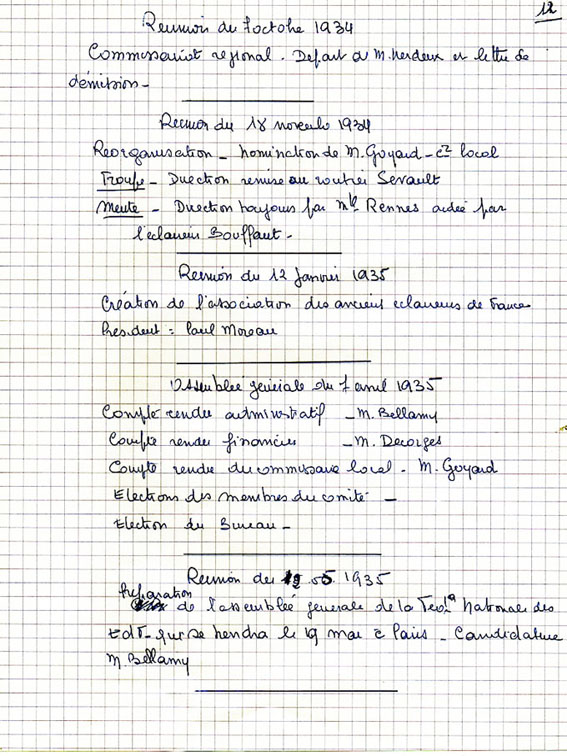 12
Reunion du 7 octobre 1934
Commissariat regional. Depart de M. et lettre de
démission -
Reunion du 18 novembre 1934
Reorganisation - Nomination de M. Goyard - local
Troupe - Direction remise au routier Servault
Meute - Direction toujours par Mlle Rennes aidée par
l'eclaireur Bouffaut -
Reunion du 12 Janvier 1935
Création de l'association des anciens eclaireurs de France
President : Paul Moreau
Assemblée générale du 7 avril 1935
Compte rendu administratif - M. Bellamy
Compte rendu financier - M. Decorges
Compte rendu du commissaire local - M. Goyard
Elections des membres du comité -
Election du Bureau -
Reunion du 05 1935
Preparation
de l'assemblée generale de la Nationale des
EdF - qui se tiendra le 19 mai à Paris - Candidature
M. Bellamy